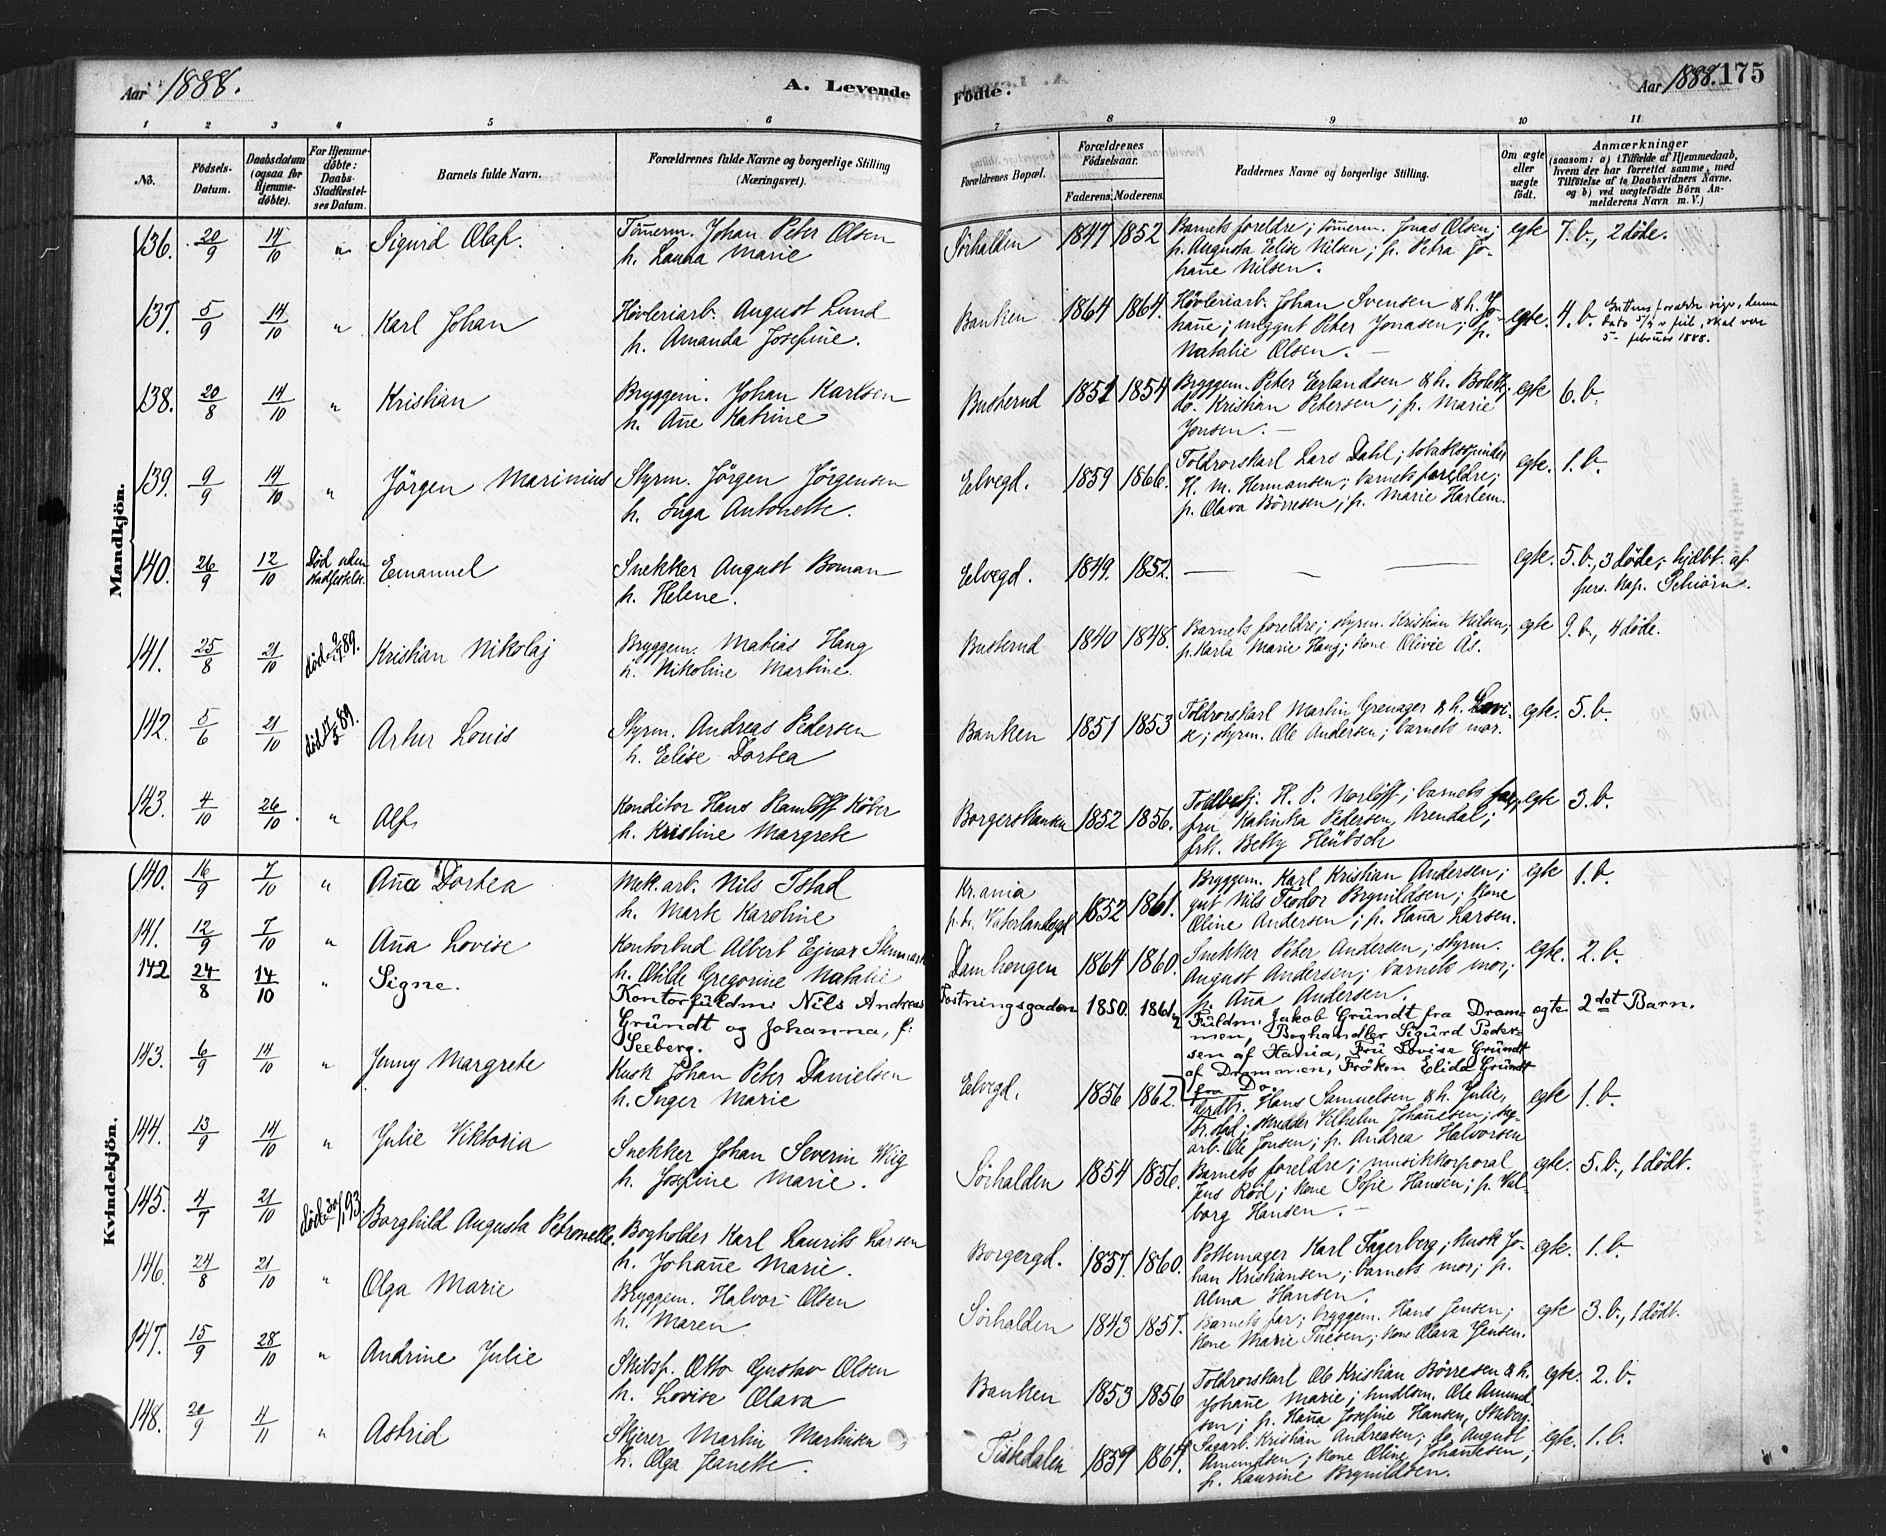 Aar 1888.
A. Levende
Fødte.
Aar 1888. 175
1 2 3 4 5 6 7 8 9 10 11
No.
Fødsels-
Datum.
Daabsdatum
(ogsaa for
Hjemme-
døbte).
For Hjemme-
døbte:
Daabs-
Stadfæstel-
ses Datum.
Barnets fulde Navn.
Forældrenes fulde Navne og borgerlige Stilling
(Næringsvei).
Forældrenes Bopæl.
Forældrenes
Fødselsaar.
Faderens. Moderens.
Faddernes Navne og borgerlige Stilling.
Om ægte
eller
uægte
født.
Anmærkninger
(saasom: a) i Tilfælde af Hjemmedaab,
hvem der har forrettet samme, med
Tilføielse af to Daabsvidners Navne.
og b) ved uægtefødte Børn An-
melderens Navn m. V.)
Mandkjön.
136. 20/9 14/10 " Sigurd Olaf. Tømerm. Johan Peter Olsen
h. Laura Marie
Sørhalden 1847 1852 Barnets foreldre; tømerm. Jonas Olsen;
p. Augusta Elise Nilsen; p. Petra Jo-
hañe Nilsen.
egte 7. b., 2 døde.
137. 5/9 14/10 " Karl Johan Høvleriarb. August Lund
h. Amanda Josefine.
Banken 1864 1864. Høvleriarb. Johan Svensen & h. Jo-
hañe; unggut Peter Jonasen; p.
Natalie Olsen.
egte. 4. b.
5 februar 1888.
138. 20/8 14/10 " Kristian Bryggem. Johan Karlsen
h. Añe Katrine
Busterud 1851 1854 Bryggem. Peter Erlandsen & h. Bolette;
do. Kristian Petersen; p. Marie
Jonsen.
egte 6. b.
139. 9/9 14/10 " Jørgen Marinius Styrm. Jørgen Jørgensen
h. Inga Antonette.
Elvegd. 1859 1866. Toldrorskarl Lars Dahl; tobakspinder
H. M. Hermansen; barnets foreldre;
p. Olava Børresen; p. Marie Harlem.
egte. 1. b.
140. 26/9 12/10 Død uden
stadfestelse. Emanuel Snekker August Boman
h. Helene.
Elvegd. 1849. 1852. — — —
egte. 5. b., 3 døde; hjdbt. af
pers. kap. Schiørn.
141. 25/8 21/10 død 89. Kristian Nikolaj Bryggem. Matias Haug
h. Nikoline Martine.
Busterud 1840 1848. Barnets foreldre; styrm. Kristian Nilsen;
p. Karla Marie Haug; kone Olivie Ås.
egte 9. b., 4 døde.
142. 5/6 21/10 død 89. Artur Louis Styrm. Andreas Pedersen
h. Elise Dortea
Banken 1851 1853 Toldrorskarl Martin Grenager & h. Lovi-
se; styrm. Ole Andersen; barnets mor.
egte. 5. b.
143. 4/10 26/10. " Alf. Konditor Hans Ramløff Køber
h. Kristine Margrete
Borgerskansen 1852 1856. Toldbetj. H. P. Norløff; barnets far;
fru Katinka Pedersen, Arendal;
frk. Betty Heütsch
egte 3. b.
Kvindekjön.
140. 16/9 7/10 " Aña Dortea Mek. arb. Nils Istad
h. Marte Karoline
Kr.ania
p. t. Vaterlandsgd 1852 1861. Bryggem. Karl Kristian Andersen;
gut Nils Teodor Brynildsen; kone
Oline Andersen; p. Haña Larsen.
egte 1. b.
141. 12/9 7/10 " Aña Lovise Kontorbud Albert Ejnar
h. Otilde Gregorine Natalie
Damhengen 1864 1860. Snekker Peter Andersen; styrm.
August Andersen; barnets mor;
p. Aña Andersen.
egte. 2. b.
142 24/8 14/10 " Signe. Kontorfuldm. Nils Andreas
Gründt og Johanna, f.
Seeberg.
Tostningsgaden 1850. 1861. Füldm. Jakob Gründt fra Dram-
men, Boghandler Sigürd Peder-
sen af Kania, Frü Lovise Gründt
af Drammen, Frøken Elida Gründt
fra Do.
egte 2det Barn.
143. 6/9 14/10 " Jenny Margrete Kusk Johan Peter Danielsen
h. Inger Marie
Elvegd. 1856 1862. Grdbr. Hans Samuelsen & h. Julie,
Tr.stad; skredder Vilhelm Johañesen; sag-
arb. Ole Jonsen; p. Andrea Halvorsen
egte 1. b.
144. 13/9 14/10 " Julie Viktoria Snekker Johan Severin Wiig
h. Josefine Marie.
Sørhalden 1854 1856. Barnets foreldre; musikkorporal
Jens Rød; kone Sofie Hansen; p. Val-
borg Hansen.
egte. 5. b., 1 dødt.
145. 4/7 21/10 død 93. Borghild Augusta Petronelle. Bogholder Karl Laurits Larsen
h. Johañe Marie.
Borgergd. 1857. 1860. Pottemager Karl Fagerberg; kusk Jo-
han Kristiansen; barnets mor; p.
Alma Hansen.
egte. 1. b.
146. 24/8 21/10 " Olga Marie Bryggem. Halvor Olsen
h. Maren
Sørhalden 1843 1857. Barnets far; bryggem. Hans Jensen;
kone Marie Thesen; kone Olava Jensen.
egte 3. b., 1 dødt.
147. 15/9 28/10 " Andrine Julie Skibsf. Otto Gustav Olsen
h. Lovise Olava
Banken 1853 1856 Toldrorskarl Ole Kristian Børresen & h.
Johañe Marie; hndlsm. Ole Amund-
sen; p. Haña Josefine Hansen, Skeberg.
egte. 2. b.
148. 20/9 4/11 " Astrid Skjerer Martin Martinsen
h. Olga Jeanette.
Tistedalen 1859 1864. Sagarb. Kristian Andreasen; do August
Amundsen; kone Oline Johañesen;
p. Laurine Brynildsen.
egte. 1. b.